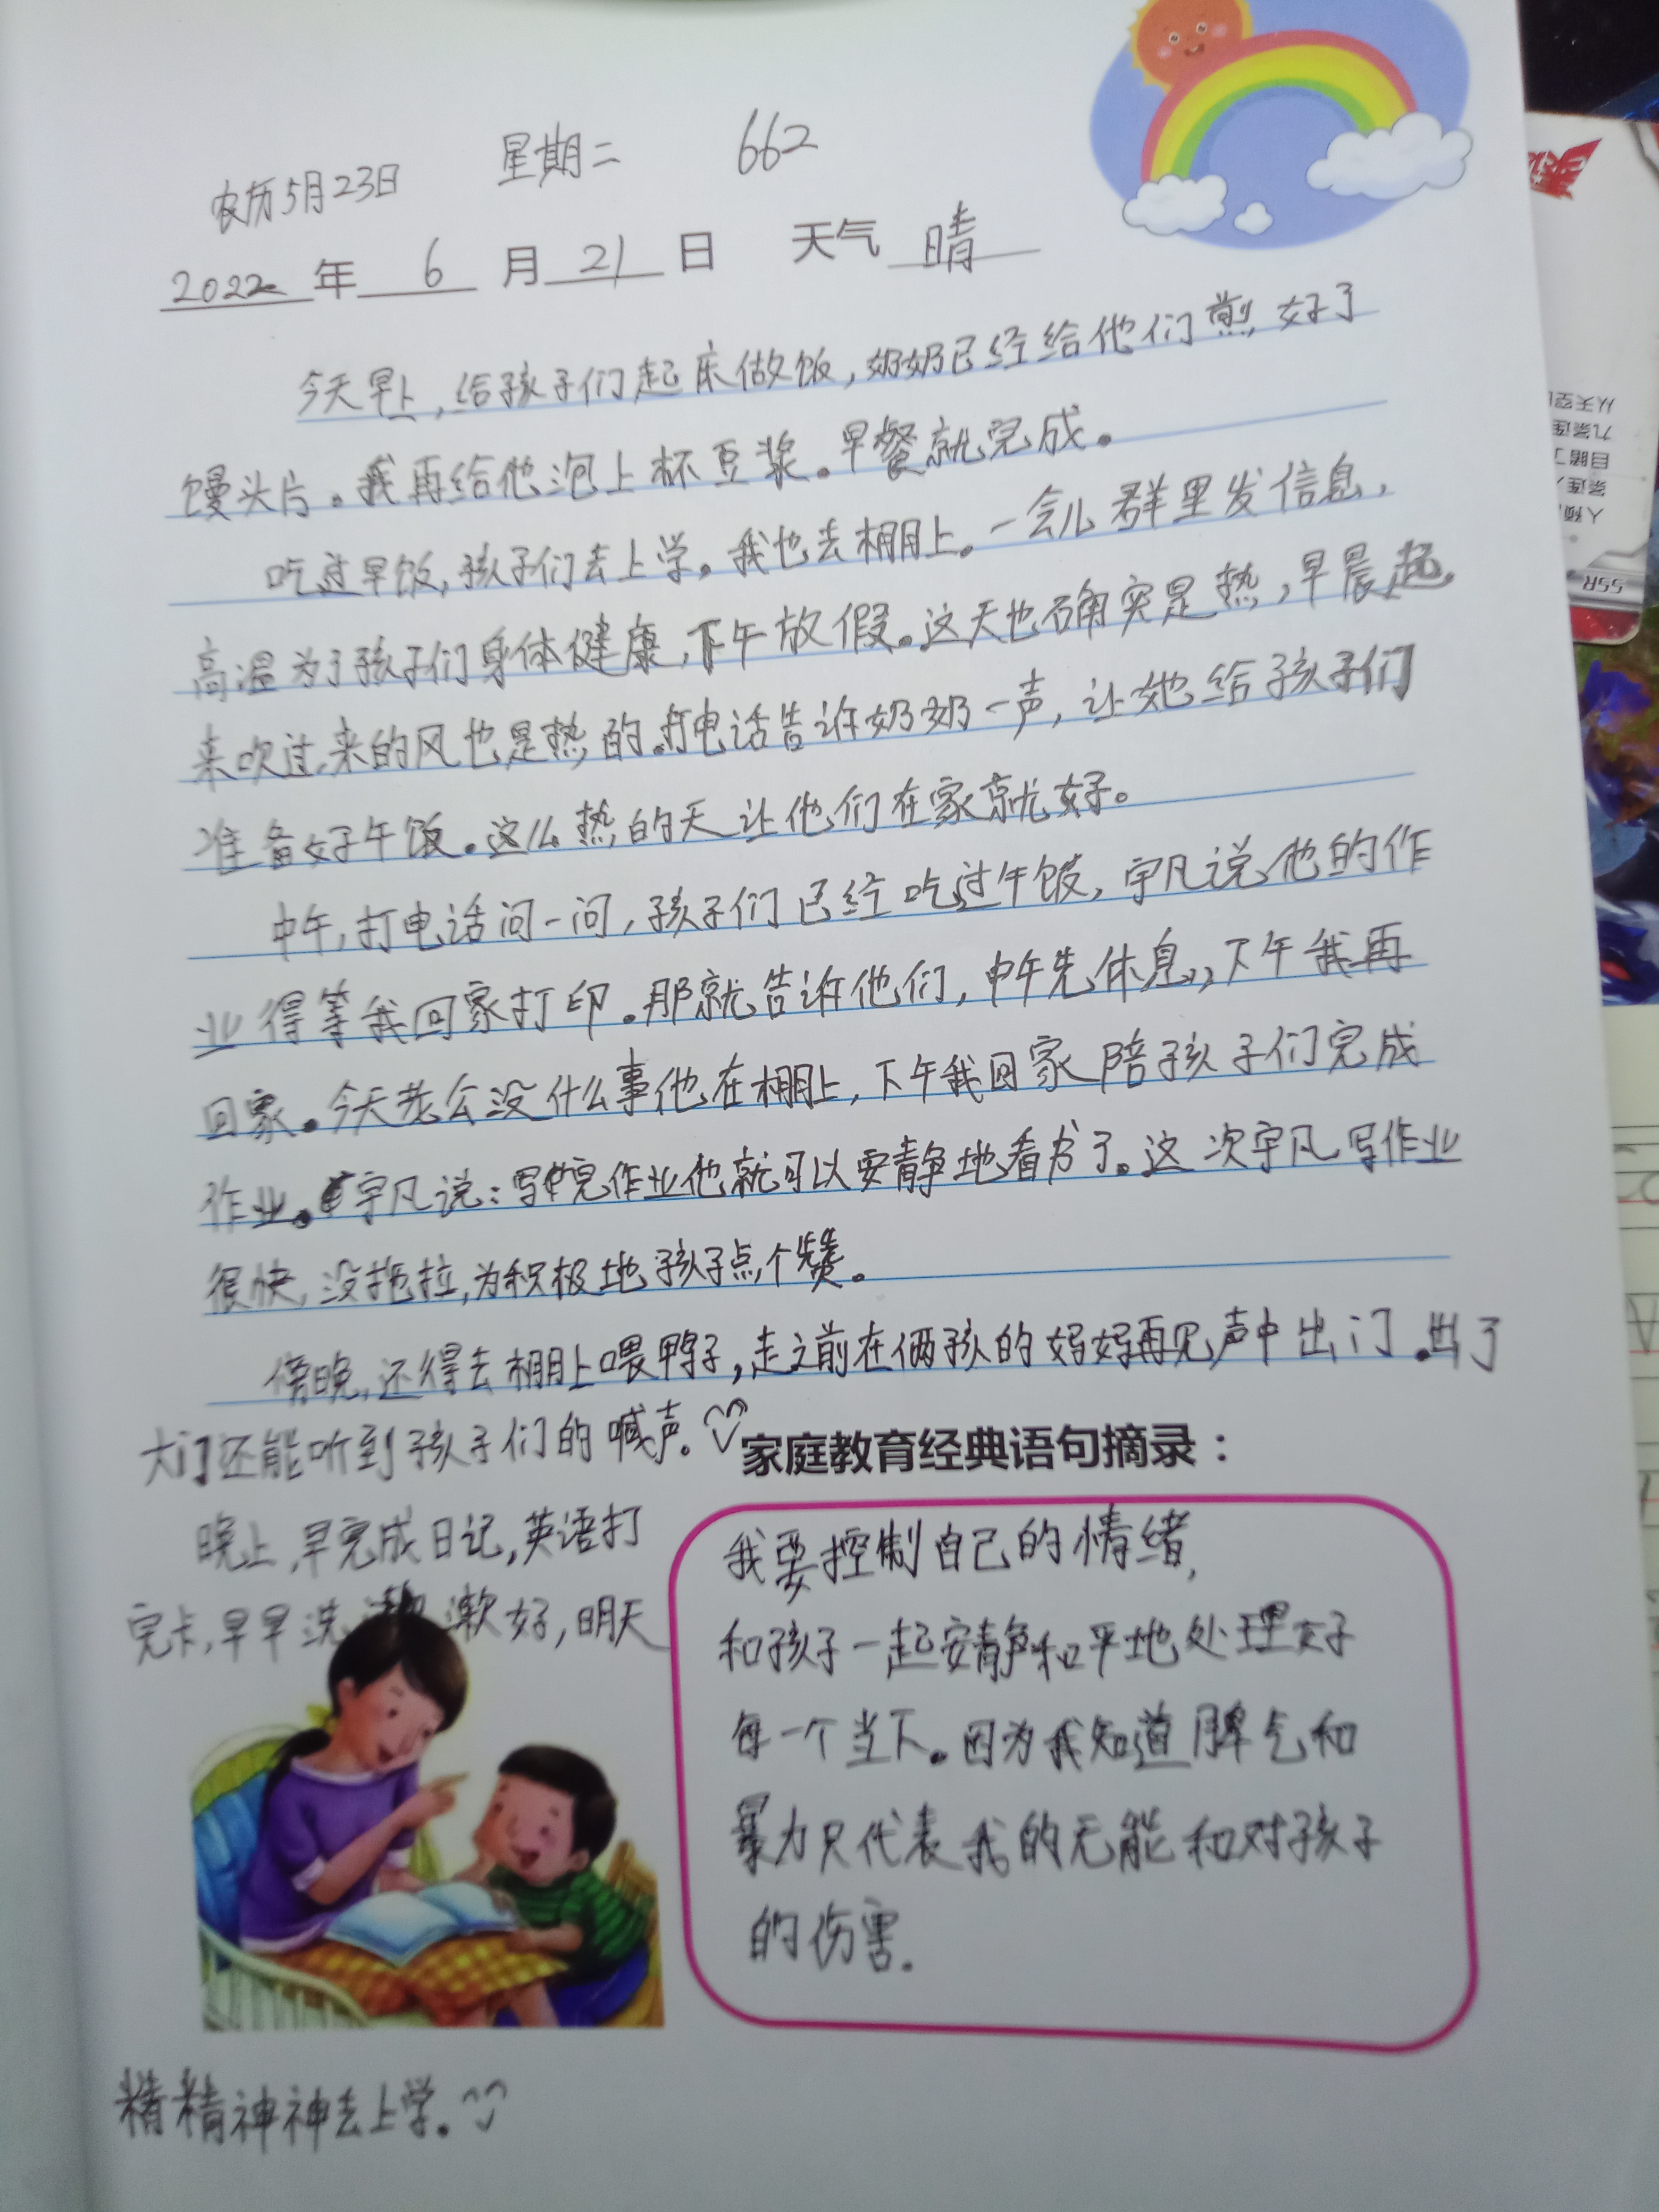 农历5月23日 星期二 662
2022年 6 月 21 日 天气 晴
今天早上,给孩子们起床做饭,奶奶已经给他们煎好了
馒头片。我再给他泡上杯豆浆。早餐就完成。
吃过早饭,孩子们去上学。我也去棚上。一会儿群里发信息,
高温为了孩子们身体健康,下午放假。这天也确实是热,早晨起
来吹过来的风也是热的。打电话告诉奶奶一声,让她给孩子们
准备好午饭。这么热的天让他们在家就好。
中午,打电话问一问,孩子们已经吃过午饭,宇凡说他的作
业得等我回家打印。那就告诉他们,中午先休息,下午我再
回家。今天老公没什么事他在棚上,下午我回家陪孩子们完成
作业。宇凡说:写完作业他就可以安静地看书了。这次宇凡写作业
很快,没拖拉,为积极地孩子点个赞。
傍晚,还得去棚上喂鸭子,走之前在俩孩的妈妈再见声中出门。出了
大门还能听到孩子们的喊声。
家庭教育经典语句摘录:
晚上,早完成日记,英语打
完卡,早早洗漱好,明天
我要控制自己的情绪,
和孩子一起安静和平地处理好
每一个当下。因为我知道脾气和
暴力只代表我的无能和对孩子
的伤害.
精精神神去上学。
从天空
九条连
目瞎了
条连
人预
SSR